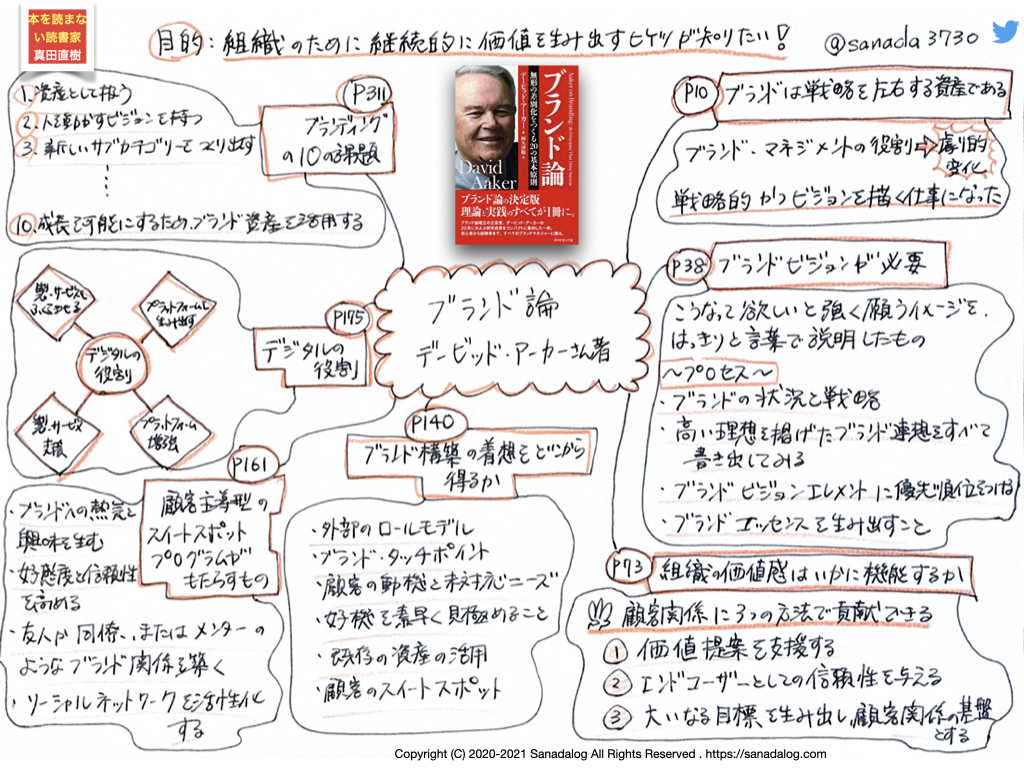 本を読まな
い読書家
真田直樹
目的:組織のために継続的に価値を生み出すヒケツが知りたい!
@sanada3730
P311
ブランディング
の10の課題
1. 資産として扱う
2. 人を動かすビジョンを持つ
3. 新しいサブカテゴリーをつくり出す
⋮
10. 成長を可能にするため、ブランド資産を活用する
Aaker on Branding: 20 Principles That Drive Success
ブランド論
無形の差別化をつくる20の基本原則
デービッド・アーカー
David
Aaker
ブランド論の決定版
理論と実践のすべてが1冊に。
ダイヤモンド社
P10
ブランドは戦略を左右する資産である
ブランド・マネジメントの役割⇨劇的
変化
戦略的かつビジョンを描く仕事になった
P38
ブランドビジョンが必要
こうなって欲しいと強く願うイメージを、
はっきりと言葉で説明したもの
~プロセス~
・ブランドの状況と戦略
・高い理想を掲げたブランド連想をすべて
書き出してみる
・ブランドビジョンエレメントに優先順位をつける
・ブランドエッセンスを生み出すこと
ブランド論
デービッド・アーカーさん著
P175
デジタルの
役割
製・サービスを
ふくらませる
プラットフォームを
生み出す
デジタルの
役割
製・サービス
支援
プラットフォーム
増強
P140
ブランド構築の着想をどこから
得るか
・外部のロールモデル
・ブランド・タッチポイント
・顧客の動機と未対応ニーズ
・好機を素早く見極めること
・既存の資産の活用
・顧客のスイートスポット
P161
顧客主導型の
スイートスポット
プログラムが
もたらすもの
・ブランドへの熱気と
興味を生む
・好感度と信頼性
を高める
・友人か同僚、またはメンターの
ようなブランド関係を築く
・ソーシャルネットワークを活性化
する
P73
組織の価値感はいかに機能するか
顧客関係に3つの方法で貢献できる
① 価値提案を支援する
② エンドユーザーとしての信頼性を与える
③ 大いなる目標を生み出し、顧客関係の基盤
とする
Copyright (C) 2020-2021 Sanadalog All Rights Reserved . https://sanadalog.com